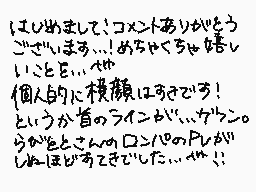 はじめまして！コメントありがとう
ございます…！めちゃくちゃ嬉し
いことを…
個人的に横顔はすきです！
というか首のラインが…ゲフン。
らがととさんのロンパのPVが
しぬほどすてきでした…!!